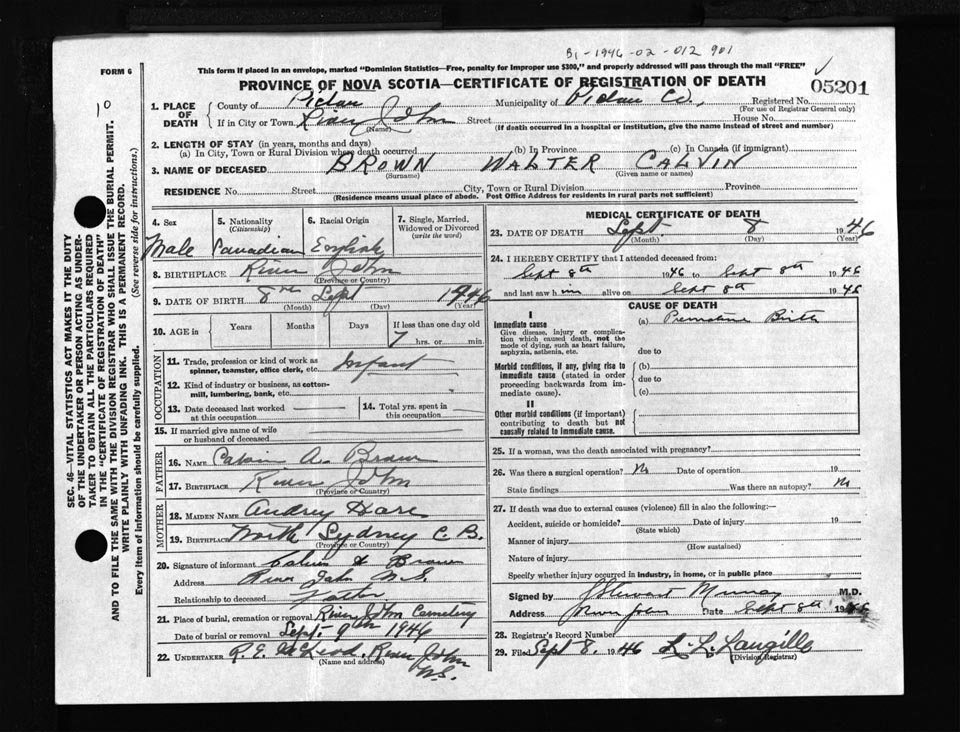 B1-1946-02-012901
FORM 6
This form if placed in an envelope, marked "Dominion Statistics—Free, penalty for improper use $300," and properly addressed will pass through the mail "FREE"
PROVINCE OF NOVA SCOTIA—CERTIFICATE OF REGISTRATION OF DEATH
05201
10
1. PLACE OF DEATH
County of Pictou Municipality of Pictou Co., Registered No.
(For use of Registrar General only)
If in City or Town River John Street House No.
(Name) (If death occurred in a hospital or institution, give the name instead of street and number)
2. LENGTH OF STAY (in years, months and days)
(a) In City, Town or Rural Division where death occurred (b) In Province (c) In Canada (if immigrant)
3. NAME OF DECEASED BROWN WALTER CALVIN
(Surname) (Given name or names)
RESIDENCE No. Street City, Town or Rural Division Province
(Residence means usual place of abode. Post Office Address for residents in rural parts not sufficient)
4. Sex Male
5. Nationality (Citizenship) Canadian
6. Racial Origin English
7. Single, Married, Widowed or Divorced (write the word)
8. BIRTHPLACE River John
(Province or Country)
9. DATE OF BIRTH 8 Sept 1946
(Month) (Day) (Year)
10. AGE in Years Months Days If less than one day old
7 hrs. or min.
OCCUPATION
11. Trade, profession or kind of work as spinner, teamster, office clerk, etc. Infant
12. Kind of industry or business, as cotton-mill, lumbering, bank, etc.
13. Date deceased last worked at this occupation
14. Total yrs. spent in this occupation
15. If married give name of wife or husband of deceased
FATHER
16. NAME Calvin A. Brown
17. BIRTHPLACE River John
(Province or Country)
MOTHER
18. MAIDEN NAME Audrey Hare
19. BIRTHPLACE North Sydney C.B.
(Province or Country)
20. Signature of informant Calvin A Brown
Address River John N.S.
Relationship to deceased Father
21. Place of burial, cremation or removal River John Cemetery
Date of burial or removal Sept. 9th 1946
22. UNDERTAKER R. E. McLeod, River John N.S.
(Name and address)
MEDICAL CERTIFICATE OF DEATH
23. DATE OF DEATH Sept 8 1946
(Month) (Day) (Year)
24. I HEREBY CERTIFY that I attended deceased from:
Sept 8th 1946 to Sept 8th 1946
and last saw him alive on Sept 8th 1946
CAUSE OF DEATH
I
Immediate cause
Give disease, injury or complication which caused death, not the mode of dying, such as heart failure, asphyxia, asthenia, etc.
(a) Premature Birth
due to
Morbid conditions, if any, giving rise to immediate cause (stated in order proceeding backwards from immediate cause).
(b)
due to
(c)
II
Other morbid conditions (if important) contributing to death but not causally related to immediate cause.
25. If a woman, was the death associated with pregnancy?
26. Was there a surgical operation? No Date of operation 19
State findings Was there an autopsy? No
27. If death was due to external causes (violence) fill in also the following:—
Accident, suicide or homicide? Date of injury 19
(State which)
Manner of injury
(How sustained)
Nature of injury
Specify whether injury occurred in industry, in home, or in public place
Signed by J Stewart Murray M.D.
Address River John Date Sept 8th 1946
28. Registrar's Record Number
29. Filed Sept 8. 1946 L. L. Langille
(Division Registrar)
SEC. 46—VITAL STATISTICS ACT MAKES IT THE DUTY
OF THE UNDERTAKER OR PERSON ACTING AS UNDER-
TAKER TO OBTAIN ALL THE PARTICULARS REQUIRED
IN THE "CERTIFICATE OF REGISTRATION OF DEATH"
AND TO FILE THE SAME WITH THE DIVISION REGISTRAR WHO SHALL ISSUE THE BURIAL PERMIT.
WRITE PLAINLY WITH UNFADING INK. THIS IS A PERMANENT RECORD.
Every item of information should be carefully supplied. (See reverse side for instructions.)